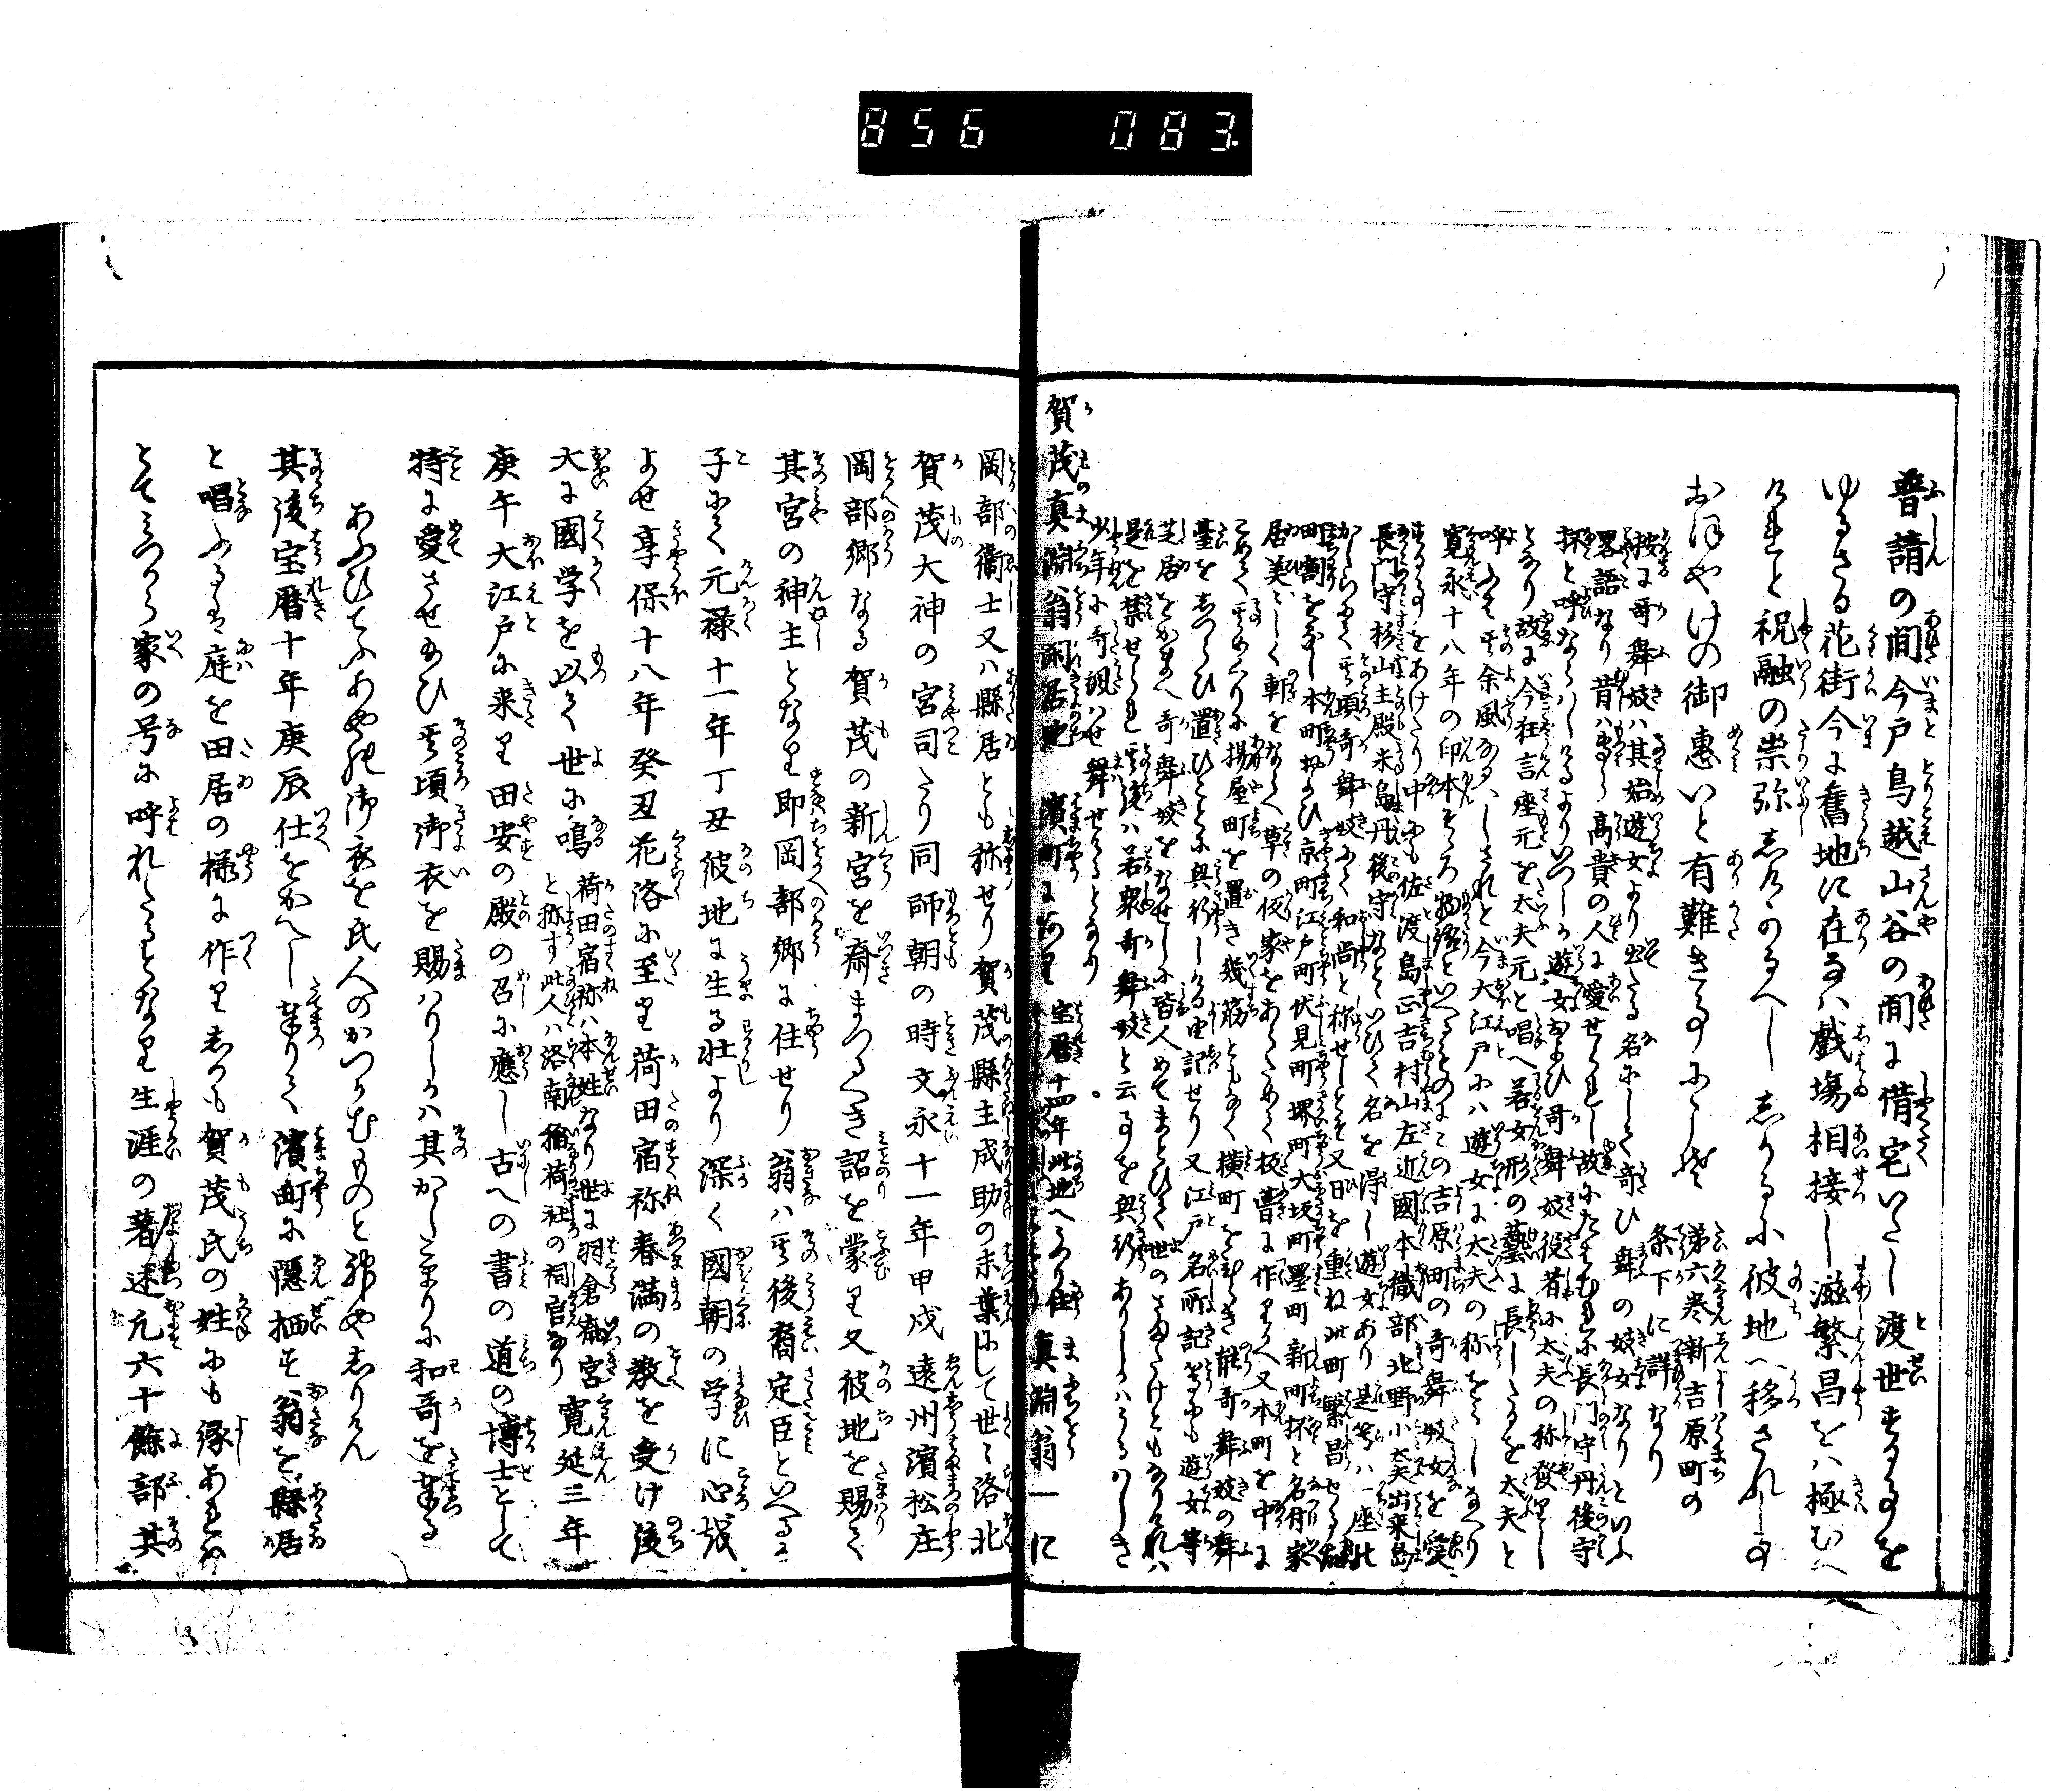 856 083
普請の間今戸鳥越山谷の間に借宅いたし渡世することを
ゆるさる花街今に舊地に在るハ戯場相接し滋繁昌をハ極むへ
けれと祝融の祟弥しけかるへししかるに彼地へ移されし事
おほやけの御恵いと有難きことにこそ
第六巻新吉原町の
条下に詳なり
按に哥舞妓ハ其始遊女より出たる名にして哥ひ舞の妓女なりといふ
畧語なり昔ハ高貴の人に愛せられし故にたはむれに長門守丹後守
抔と呼ならハしけるよりいつしか遊女および哥舞妓役者に太夫の称発りし
となり故に今狂言座元を太夫元と唱へ若女形の藝に長したるを太夫と
呼も其余風なるへしされと今大江戸にハ遊女に太夫の称をなし
寛永十八年の印本そゝろ物語といへるものにこの吉原町の哥舞妓女を愛
することをあけたり中にも佐渡島正吉村山左近國本織部北野小太夫出来島
長門守杉山主殿来島丹後守なといひて名を得し遊女あり是等ハ一座の
かしらにて其頃哥舞妓にて和尚と称せしとそ又日を重ね此町繁昌せる故
町割をなし本町および京町江戸町伏見町堺町大坂町墨町新町抔と名付家
居美々しく軒をならへ草の仮家をあらためて板葺に作りかへ又本町を中に
こめて其めくりに揚屋町を置き幾筋ともなく横町をひらき能哥舞妓の舞
臺をしつらひ置ひとつに興行しける由記せり又江戸名所記等にも遊女等
芝居をかまへ哥舞妓をなせしに皆人めてまとひて世のさまたけともなりけれハ
是を禁せられ其後ハ若衆哥舞妓と云ることを興行ありしかハうるハしき
少年に哥諷ハせ舞せけるとなり
賀茂真淵翁閑居地 濱町にあり 宝暦十四年此地へうつり住 真淵翁一に
岡部衛士又ハ縣居とも称せり賀茂縣主成助の末葉にして世々洛北
賀茂大神の宮司たり同師朝の時文永十一年甲戌遠州濱松庄
岡部郷なる賀茂の新宮を斎まつるへき詔を蒙り又彼地を賜て
其宮の神主となり即岡部郷に住せり翁ハ其後裔定臣といへる
子にて元禄十一年丁丑彼地に生る壮より深く國朝の学に心越
よせ享保十八年癸丑花洛に至り荷田宿祢春満の教を受け後
大に國学を以て世に鳴 荷田宿祢ハ本姓なり世に羽倉斎宮と称す此人ハ洛南稲荷社の祠官なり 寛延三年
庚午大江戸に来り田安の殿の召に應し古への書の道の博士として
特に愛させ給ひ其頃御衣を賜ハりしかハ其かしこまりに和哥を奉る
あふひてふあや能御衣を氏人のかつかむものと神やしりけん
其後宝暦十年庚辰仕をかへし奉りて濱町に隠栖す翁を縣居
と唱ふるは庭を田居の様に作りしかも賀茂氏の姓にも縁あれは
とてみつから家の号に呼れたるとなり生涯の著述凡六十餘部其